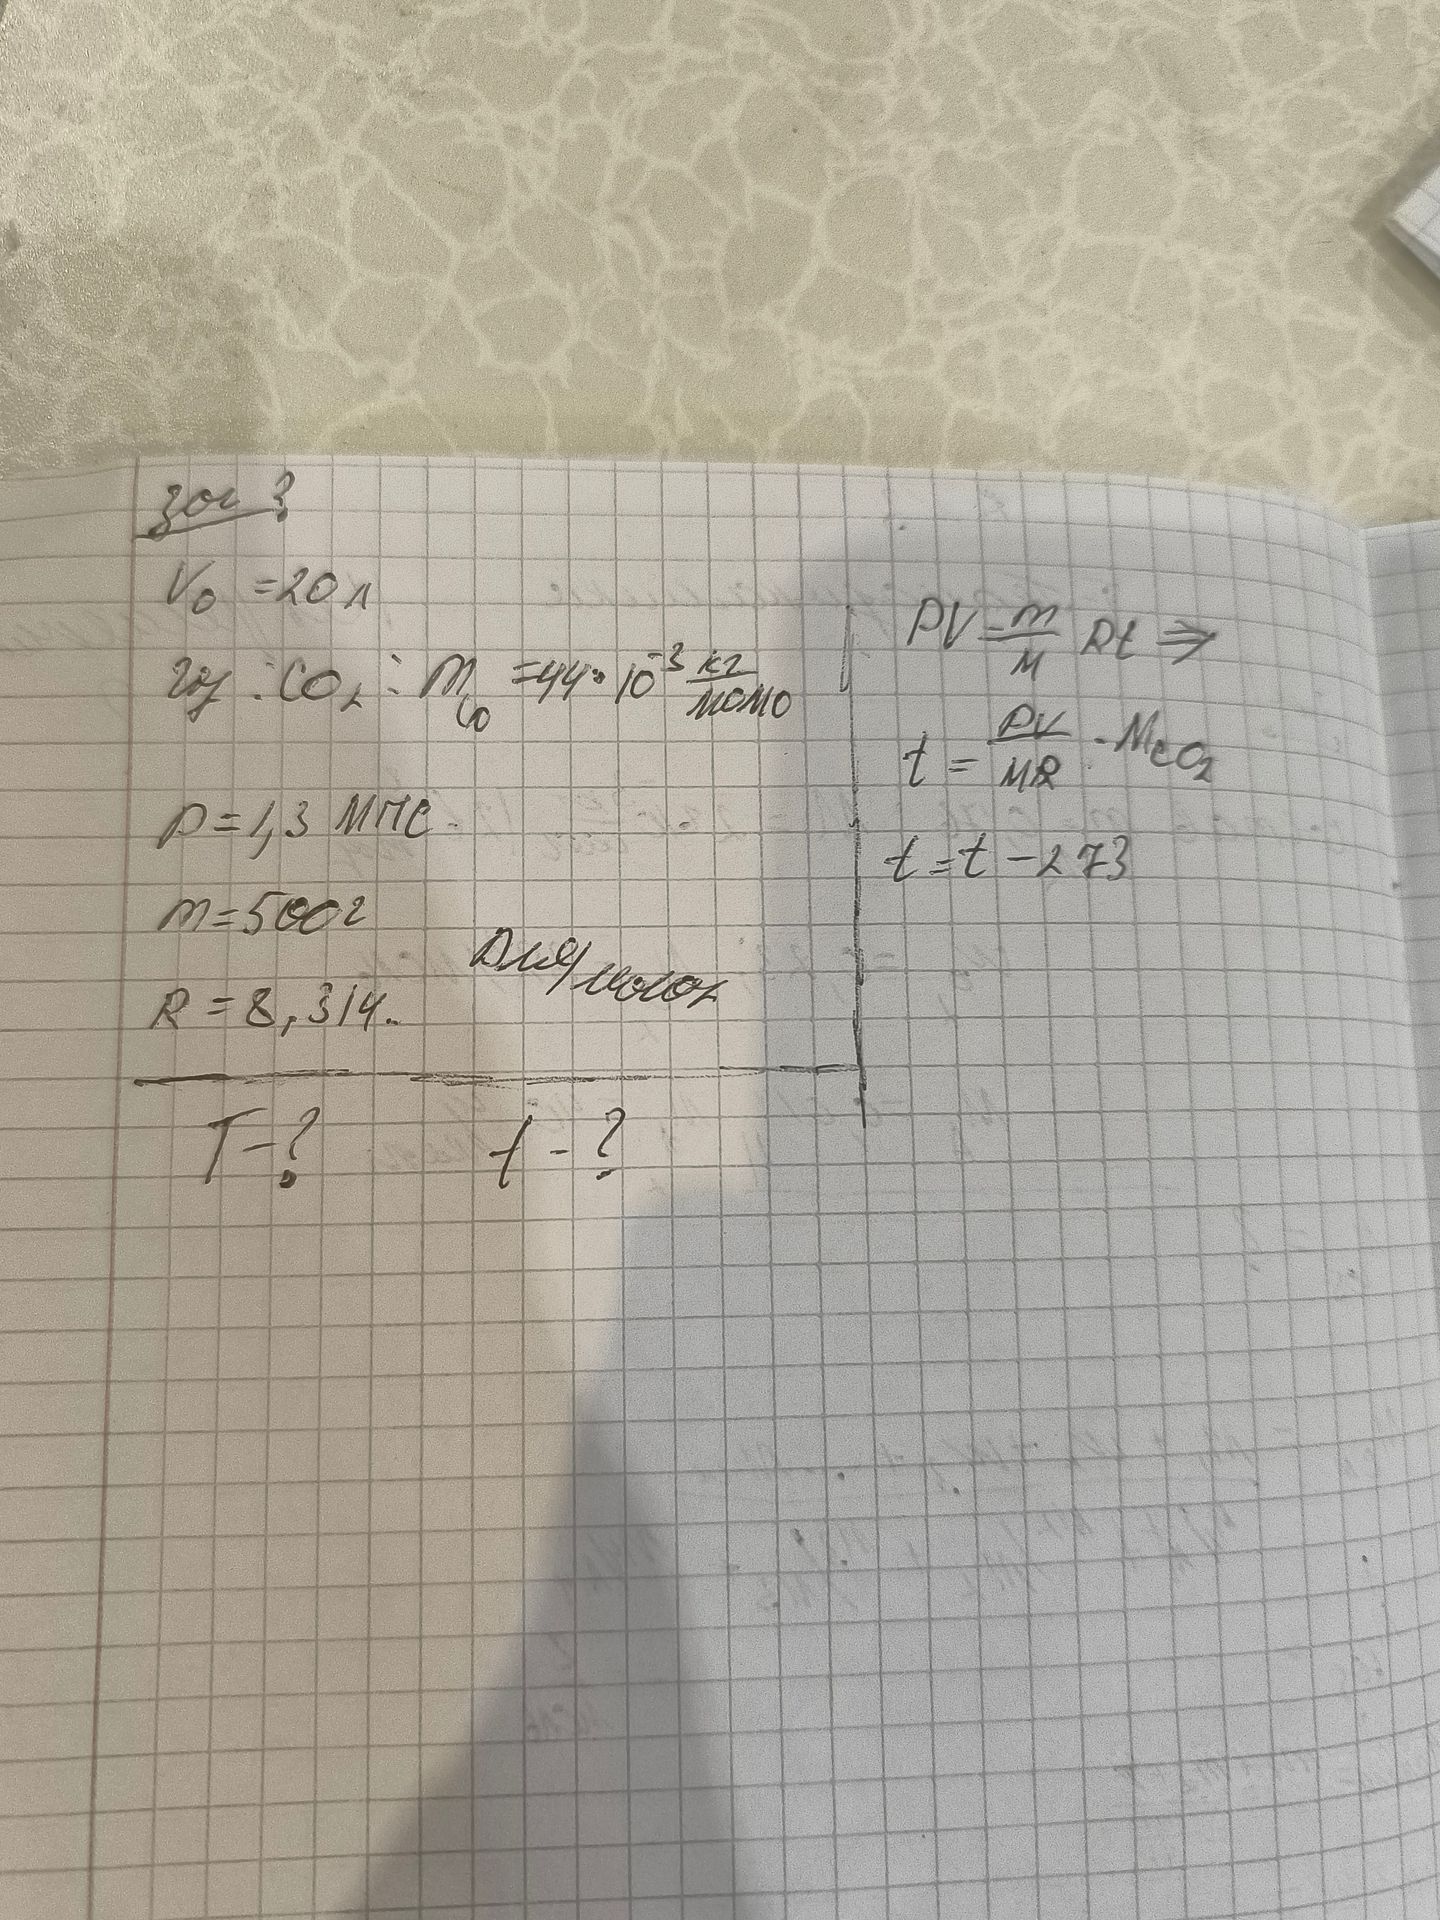 зад 3
V₀ = 20 л
газ : CO₂ : M = 44 · 10⁻³ кг/моль
P = 1,3 МПа
m = 500 г
R = 8,314. Дж/моль
T - ? t - ?
PV = m/M Rt ⇒
t = PV/MR · MCO₂
t = t - 273